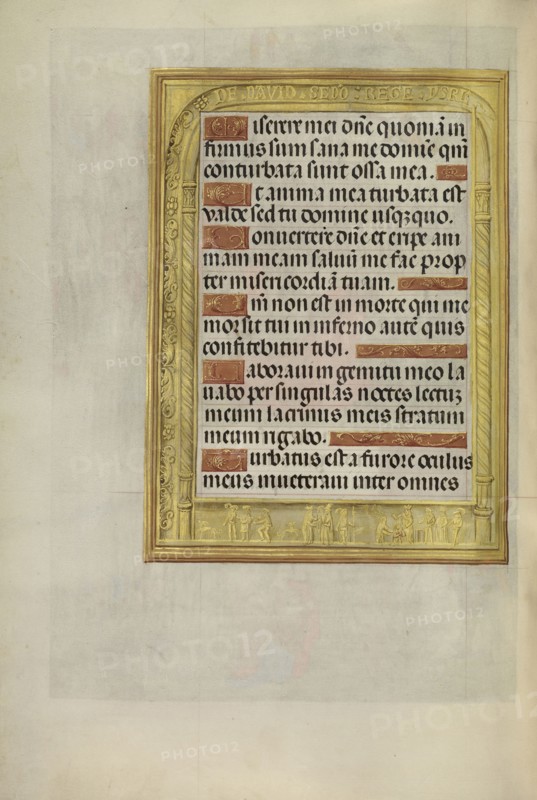 DE DAVID SEDO REGE
Miserere mei dn̄e quoniā in
firmus sum sana me domīe qm̄
conturbata sunt ossa mea.
Et anima mea turbata est
valde sed tu domine usqꝫquo.
Conuertere dn̄e et eripe ani
mam meam saluū me fac prop
ter misericordiā tuam.
Qm̄ non est in morte qui me
mor sit tui in inferno autē quis
confitebitur tibi.
Laboraui in gemitu meo la
uabo per singulas noctes lectuꝫ
meum lacrimis meis stratum
meum rigabo.
Turbatus est a furore oculus
meus inueteraui inter omnes
PHOTO12
PHOTO12
PHOTO12
PHOTO12
PHOTO12
PHOTO12
PHOTO12
PHOTO12
PHOTO12